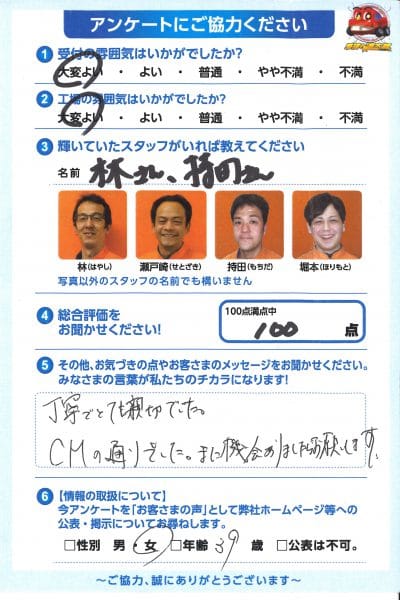 アンケートにご協力ください
1 受付の雰囲気はいかがでしたか?
大変よい ・ よい ・ 普通 ・ やや不満 ・ 不満
2 工場の雰囲気はいかがでしたか?
大変よい ・ よい ・ 普通 ・ やや不満 ・ 不満
3 輝いていたスタッフがいれば教えてください
名前 林さん、持田さん
林(はやし) 瀬戸崎(せとざき) 持田(もちだ) 堀本(ほりもと)
写真以外のスタッフの名前でも構いません
4 総合評価をお聞かせください!
100点満点中
100 点
5 その他、お気づきの点やお客さまのメッセージをお聞かせください。
みなさまの言葉が私たちのチカラになります!
丁寧でとても親切でした。
CMの通りでした。また機会ありましたらお願いします。
6 【情報の取扱について】
今アンケートを「お客さまの声」として弊社ホームページ等への
公表・掲示についてお尋ねします。
□性別 男・女 □年齢 39 歳 □公表は不可。
～ご協力、誠にありがとうございます～